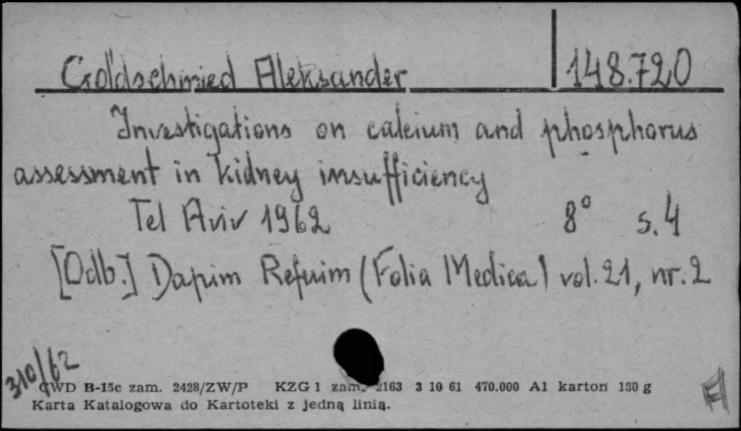 Goldschmied Aleksander 148.720
Investigations on calcium and phosphorus
assessment in kidney insufficiency
Tel Aviv 1962 8° s. 4
[Odb.] Dapim Refuim (Folia Medica) vol. 21, nr. 2
310/62
CWD B-15c zam. 2428/ZW/P KZG 1 zam. 2163 3 10 61 470.000 A1 karton 130 g
Karta Katalogowa do Kartoteki z jedną linią.